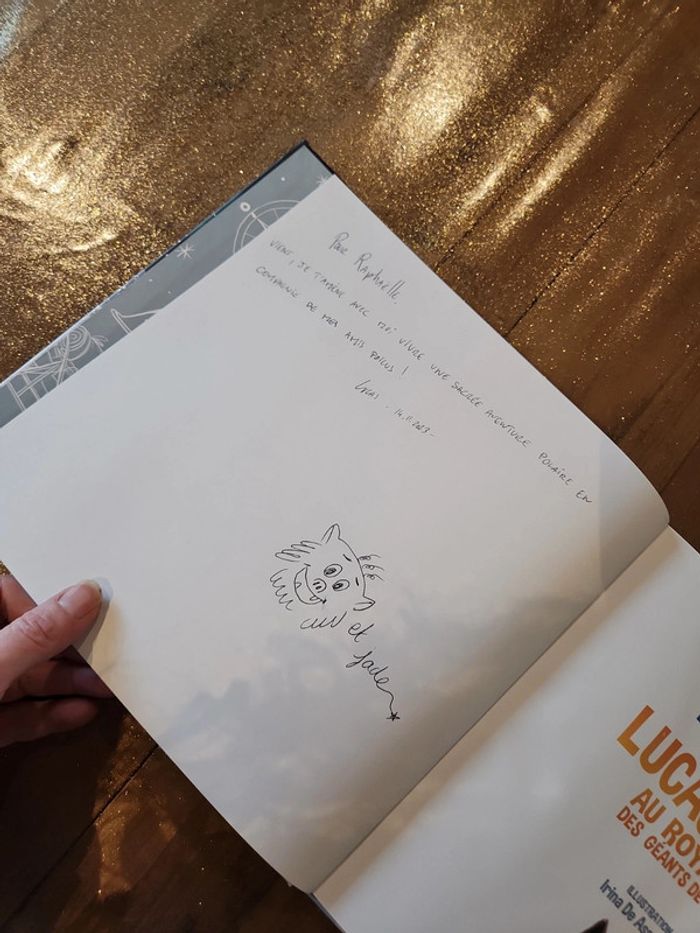 Pour Raphaëlle,
VIENT, JE T'AMÈNE AVEC MOI VIVRE UNE SACRÉE AVENTURE POLAIRE EN
COMPAGNIE DE MES AMIS POILUS !
LUCAS . 14.11.2023_
et
Jade
LUCA
AU ROY
DES GÉANTS DE
ILLUSTRATION
Irina De Ass